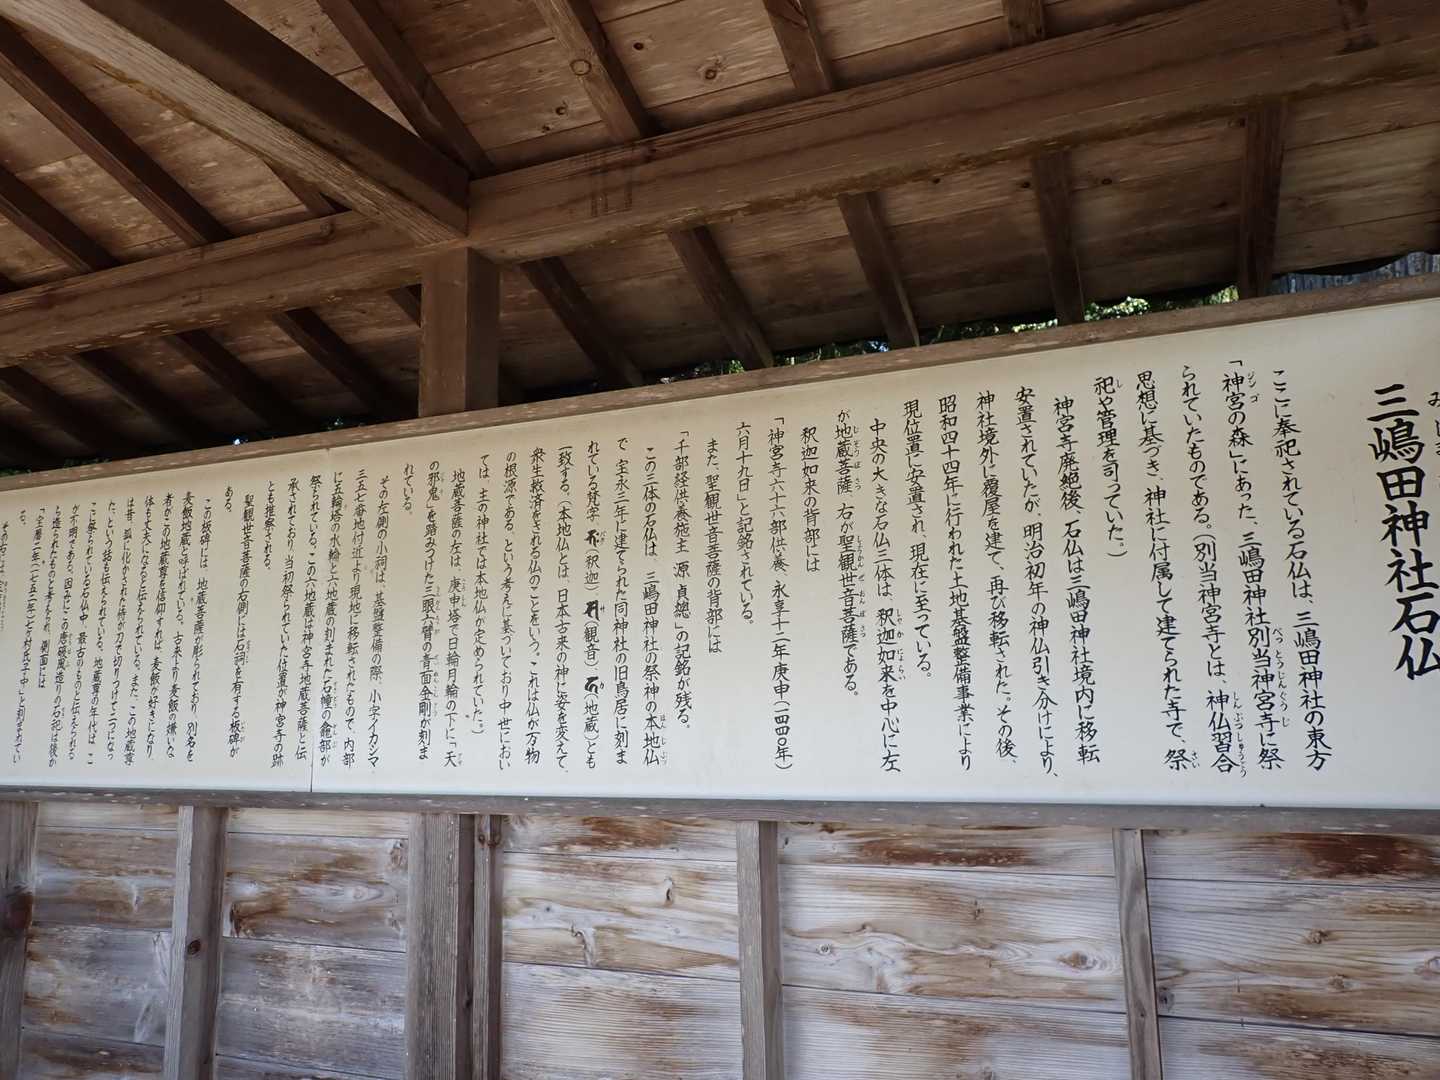 三嶋田神社石仏
ここに奉祀されている石仏は、三嶋田神社の東方
「神宮の森」にあった、三嶋田神社別当神宮寺に祭
られていたものである。(別当神宮寺とは、神仏習合
思想に基づき、神社に付属して建てられた寺で、祭
祀や管理を司っていた。)
神宮寺廃絶後、石仏は三嶋田神社境内に移転
安置されていたが、明治初年の神仏引き分けにより、
神社境外に覆屋を建て、再び移転された。その後、
昭和四十四年に行われた土地基盤整備事業により
現位置に安置され、現在に至っている。
中央の大きな石仏三体は、釈迦如来を中心に左
が地蔵菩薩、右が聖観世音菩薩である。
釈迦如来の背部には
「神宮寺六十六部供養、永享十二年庚申(一四四〇年)
六月十九日」と記銘されている。
また、聖観世音菩薩の背部には
「千部経供養施主 源 貞總」の記銘が残る。
この三体の石仏は、三嶋田神社の祭神の本地仏
で、宝永三年に建てられた同神社の旧鳥居に刻ま
れている梵字 (釈迦) (観音) (地蔵)とも
一致する。(本地仏とは、日本古来の神に姿を変えて、
衆生救済される仏のことをいう。これは仏が万物
の根源である、という考えに基づいており中世におい
ては、主の神社では本地仏が定められていた。)
地蔵菩薩の左は、庚申塔で日輪月輪の下に「天
の邪鬼」を踏みつけた三眼六臂の青面金剛が刻ま
れている。
その左側の小祠は、基盤整備の際、小字イカシマ、
三五七番地付近より現地に移転されたもので、内部
に五輪塔の水輪と六地蔵の刻まれた石幢の龕部が
祭られている。この六地蔵は神宮寺地蔵菩薩と伝
承されており、当初祭られていた位置が神宮寺の跡
とも推察される。
聖観世音菩薩の右側には石祠を有する板碑が
ある。
この板碑には、地蔵菩薩が彫られており、別名を
麦飯地蔵と呼ばれている。古来より麦飯の嫌いな
者がこの地蔵尊を信仰すれば、麦飯が好きになり、
体も丈夫になると伝えられている。また、この地蔵尊
は昔、狐に化かされた侍が刀で切りつけて二つになっ
た、という話も伝えられている。地蔵尊の年代は、こ
こに祭られている石仏中、最古のものと伝えられる
が不明である。因みにこの唐破風造りの石祠は後か
ら造られたものと考えられ、側面には
「宝暦二年(一七五二年)七月氏子中」と刻まれてい
る。
その右には、